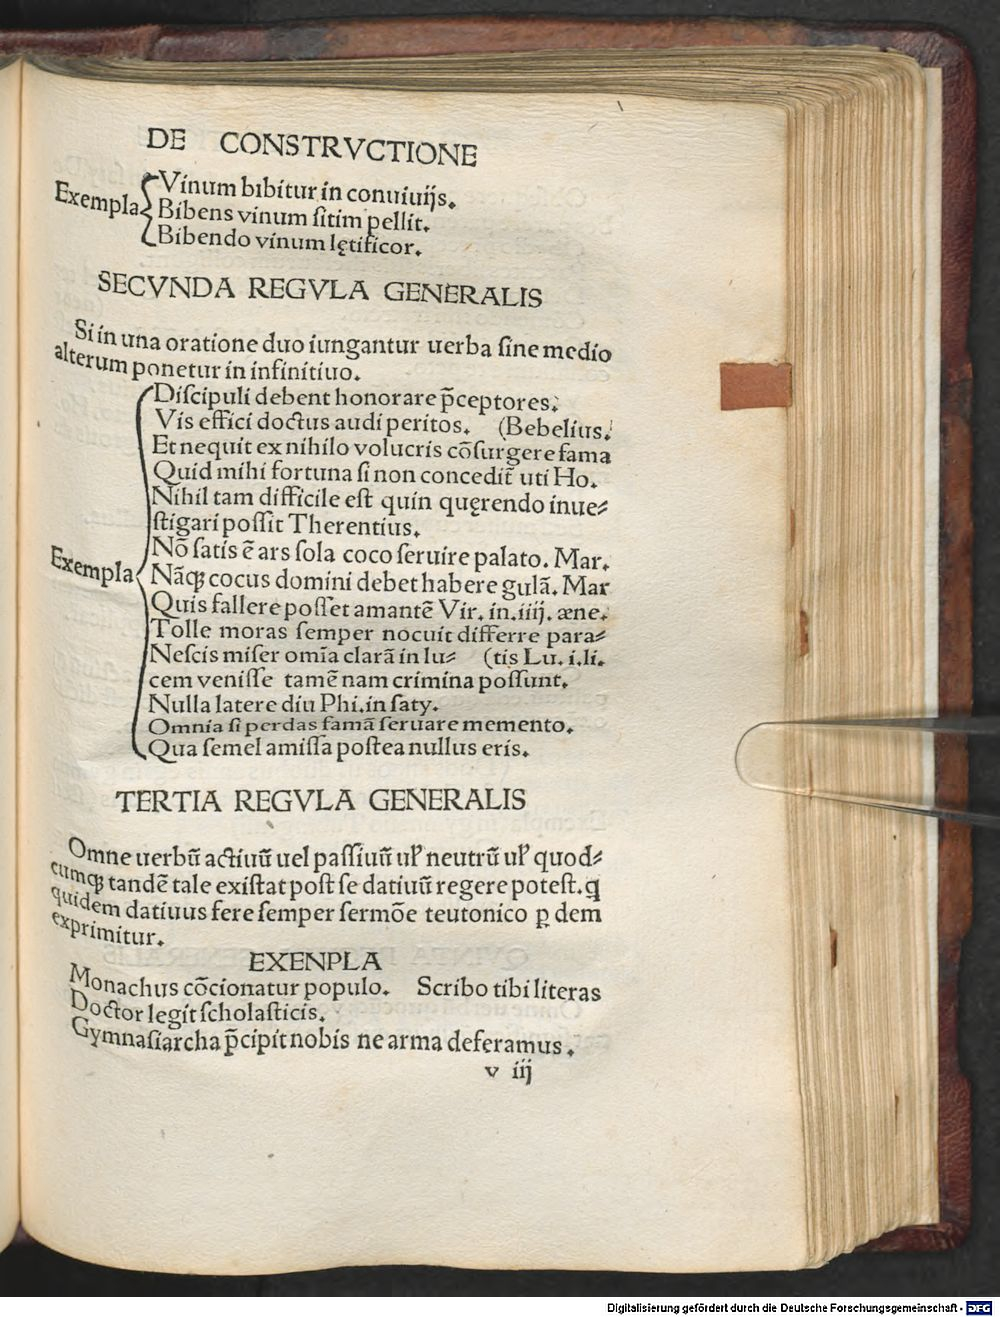 DE CONSTRVCTIONE
Exempla
Vinum bibitur in conuiuijs.
Bibens vinum ſitim pellit.
Bibendo vinum lętificor.
SECVNDA REGVLA GENERALIS
Si in una oratione duo iungantur uerba ſine medio
alterum ponetur in infinitiuo.
Exempla
Diſcipuli debent honorare p̄ceptores.
Vis effici doctus audi peritos. (Bebelius.
Et nequit ex nihilo volucris cōſurgere fama
Quid mihi fortuna ſi non concedit̄ uti Ho.
Nihil tam difficile eſt quin quęrendo inue⸗
ſtigari poſſit Therentius.
Nō ſatis ē ars ſola coco ſeruire palato. Mar.
Nāqꝫ cocus domini debet habere gulā. Mar
Quis fallere poſſet amantē Vir. in.iiij. æne.
Tolle moras ſemper nocuit differre para⸗
Neſcis miſer omīa clarā in lu⸗ (tis Lu. i.li.
cem veniſſe tamē nam crimina poſſunt.
Nulla latere diu Phi.in ſaty.
Omnia ſi perdas famā ſeruare memento.
Qua ſemel amiſſa poſtea nullus eris.
TERTIA REGVLA GENERALIS
Omne uerbū actiuū uel paſſiuū uꝉ neutrū uꝉ quod⸗
cumqꝫ tandē tale exiſtat poſt ſe datiuū regere poteſt. q
quidem datiuus fere ſemper ſermōe teutonico ꝑ dem
exprimitur.
EXENPLA
Monachus cōcionatur populo. Scribo tibi literas
Doctor legit ſcholaſticis.
Gymnaſiarcha p̄cipit nobis ne arma deferamus.
v iij
Digitalisierung gefördert durch die Deutsche Forschungsgemeinschaft - DFG